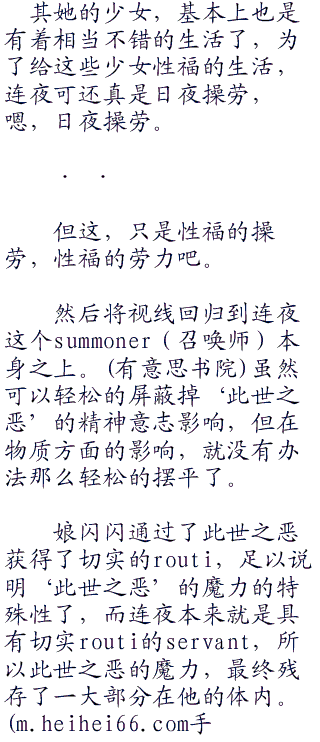 其她的少女，基本上也是
有着相当不错的生活了，为
了给这些少女性福的生活，
连夜可还真是日夜操劳，
嗯，日夜操劳。
. .
但这，只是性福的操
劳，性福的劳力吧。
然后将视线回归到连夜
这个summoner（召唤师）本
身之上。(有意思书院)虽然
可以轻松的屏蔽掉‘此世之
恶’的精神意志影响，但在
物质方面的影响，就没有办
法那么轻松的摆平了。
娘闪闪通过了此世之恶
获得了切实的routi，足以说
明‘此世之恶’的魔力的特
殊性了，而连夜本来就是具
有切实routi的servant，所
以此世之恶的魔力，最终残
存了一大部分在他的体内。
(m.heihei66.com手